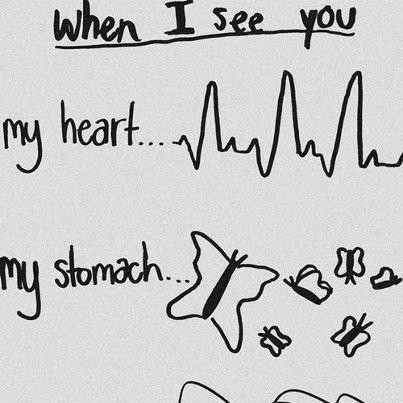 when I see you
my heart...
my stomach...